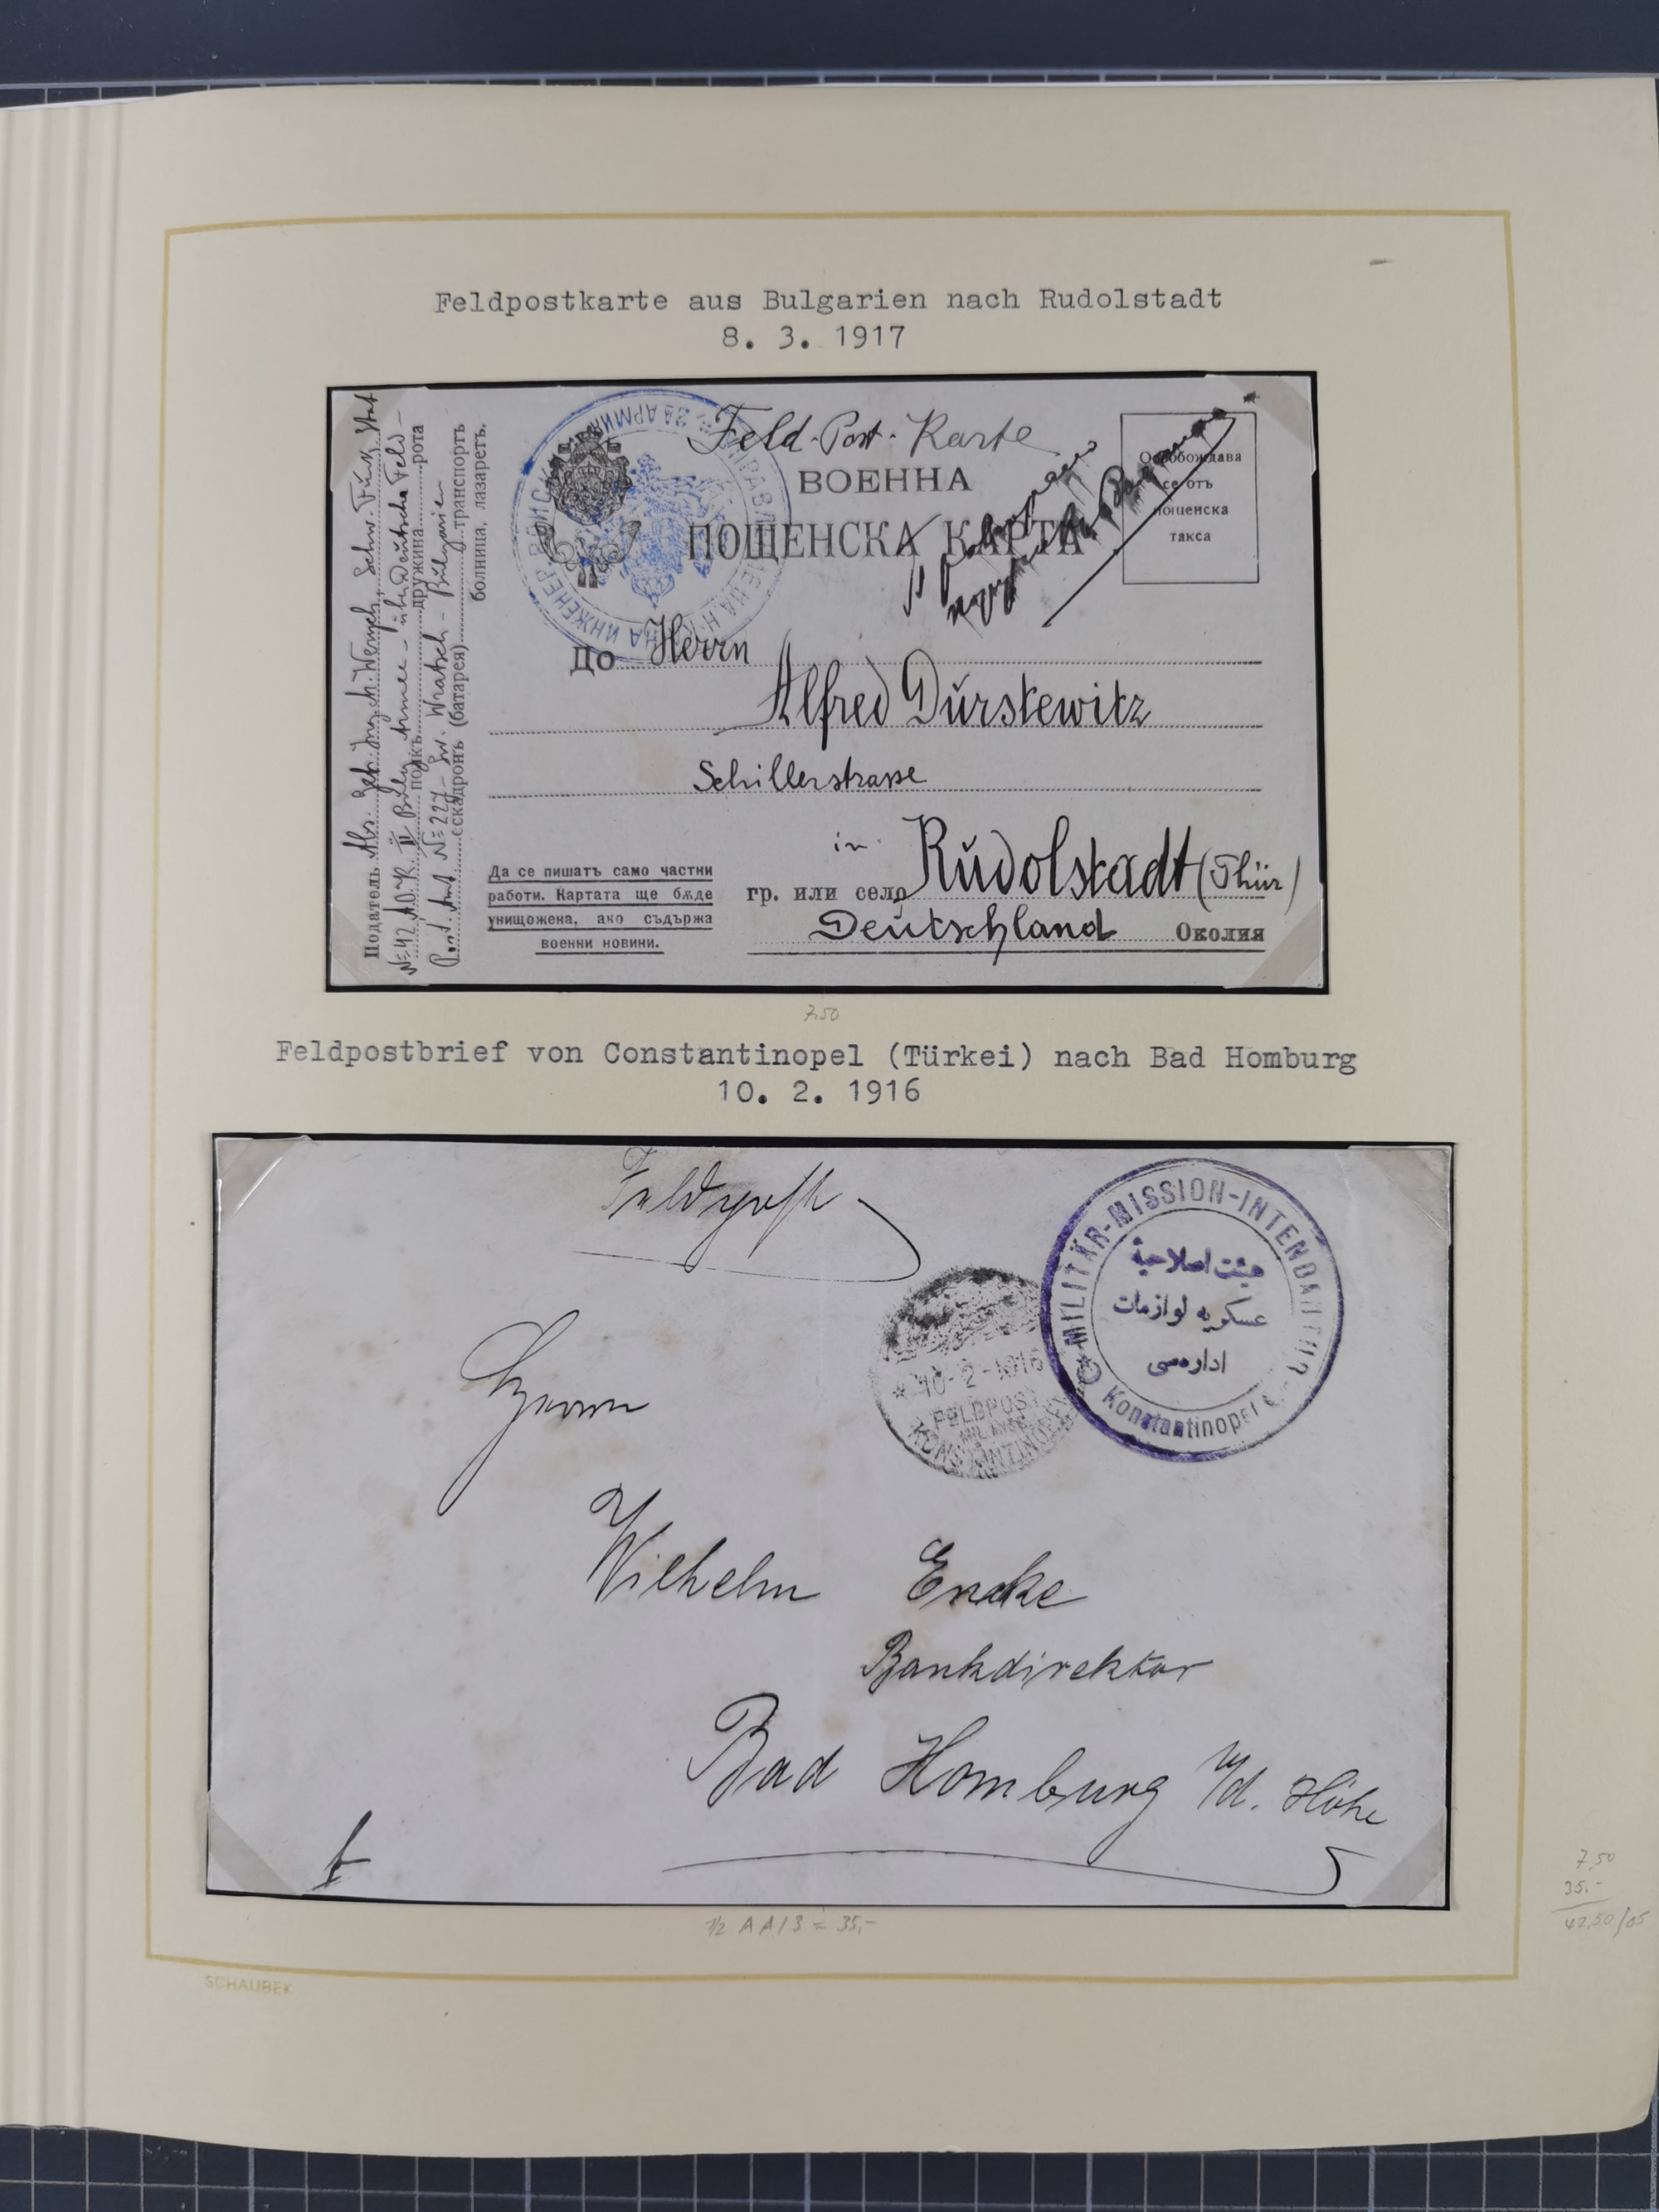 Feldpostkarte aus Bulgarien nach Rudolstadt
8. 3. 1917
Feld-Post-Karte
ВОЕННА
ПОЩЕНСКА КАРТА
Освобождава
се отъ
пощенска
такса
До Herrn
Alfred Dŭrstewitz
Schillerstrasse
in Rŭdolstadt (Thür)
гр. или село
Deŭtschland Околия
Да се пишатъ само частни
работи. Картата ще бѫде
унищожена, ако съдържа
военни новини.
Податель Abs.
№ 42 полкъ дружина рота
Post. Amt № 227 - Wratsch - Bŭlgarien
ескадронъ (батарея) транспортъ
болница, лазаретъ.
7.50
Feldpostbrief von Constantinopel (Türkei) nach Bad Homburg
10. 2. 1916
Feldpost
MILITÄR-MISSION-INTENDANTUR
هيئت اصلاحية
عسكريه لوازمات
اداره‌سى
Konstantinopel
* 10-2-1916
FELDPOST
MIL. MISS.
KONSTANTINOPEL
Herrn
Wilhelm Encke
Bankdirektor
Bad Homburg v/d. Höhe
1/2 A A/3 = 35,-
7,50
35,-
42,50/05
SCHAUBEK